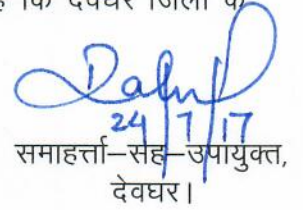 कि देवघर जिला के
24/7/17
समाहर्त्ता–सह–उपायुक्त,
देवघर।